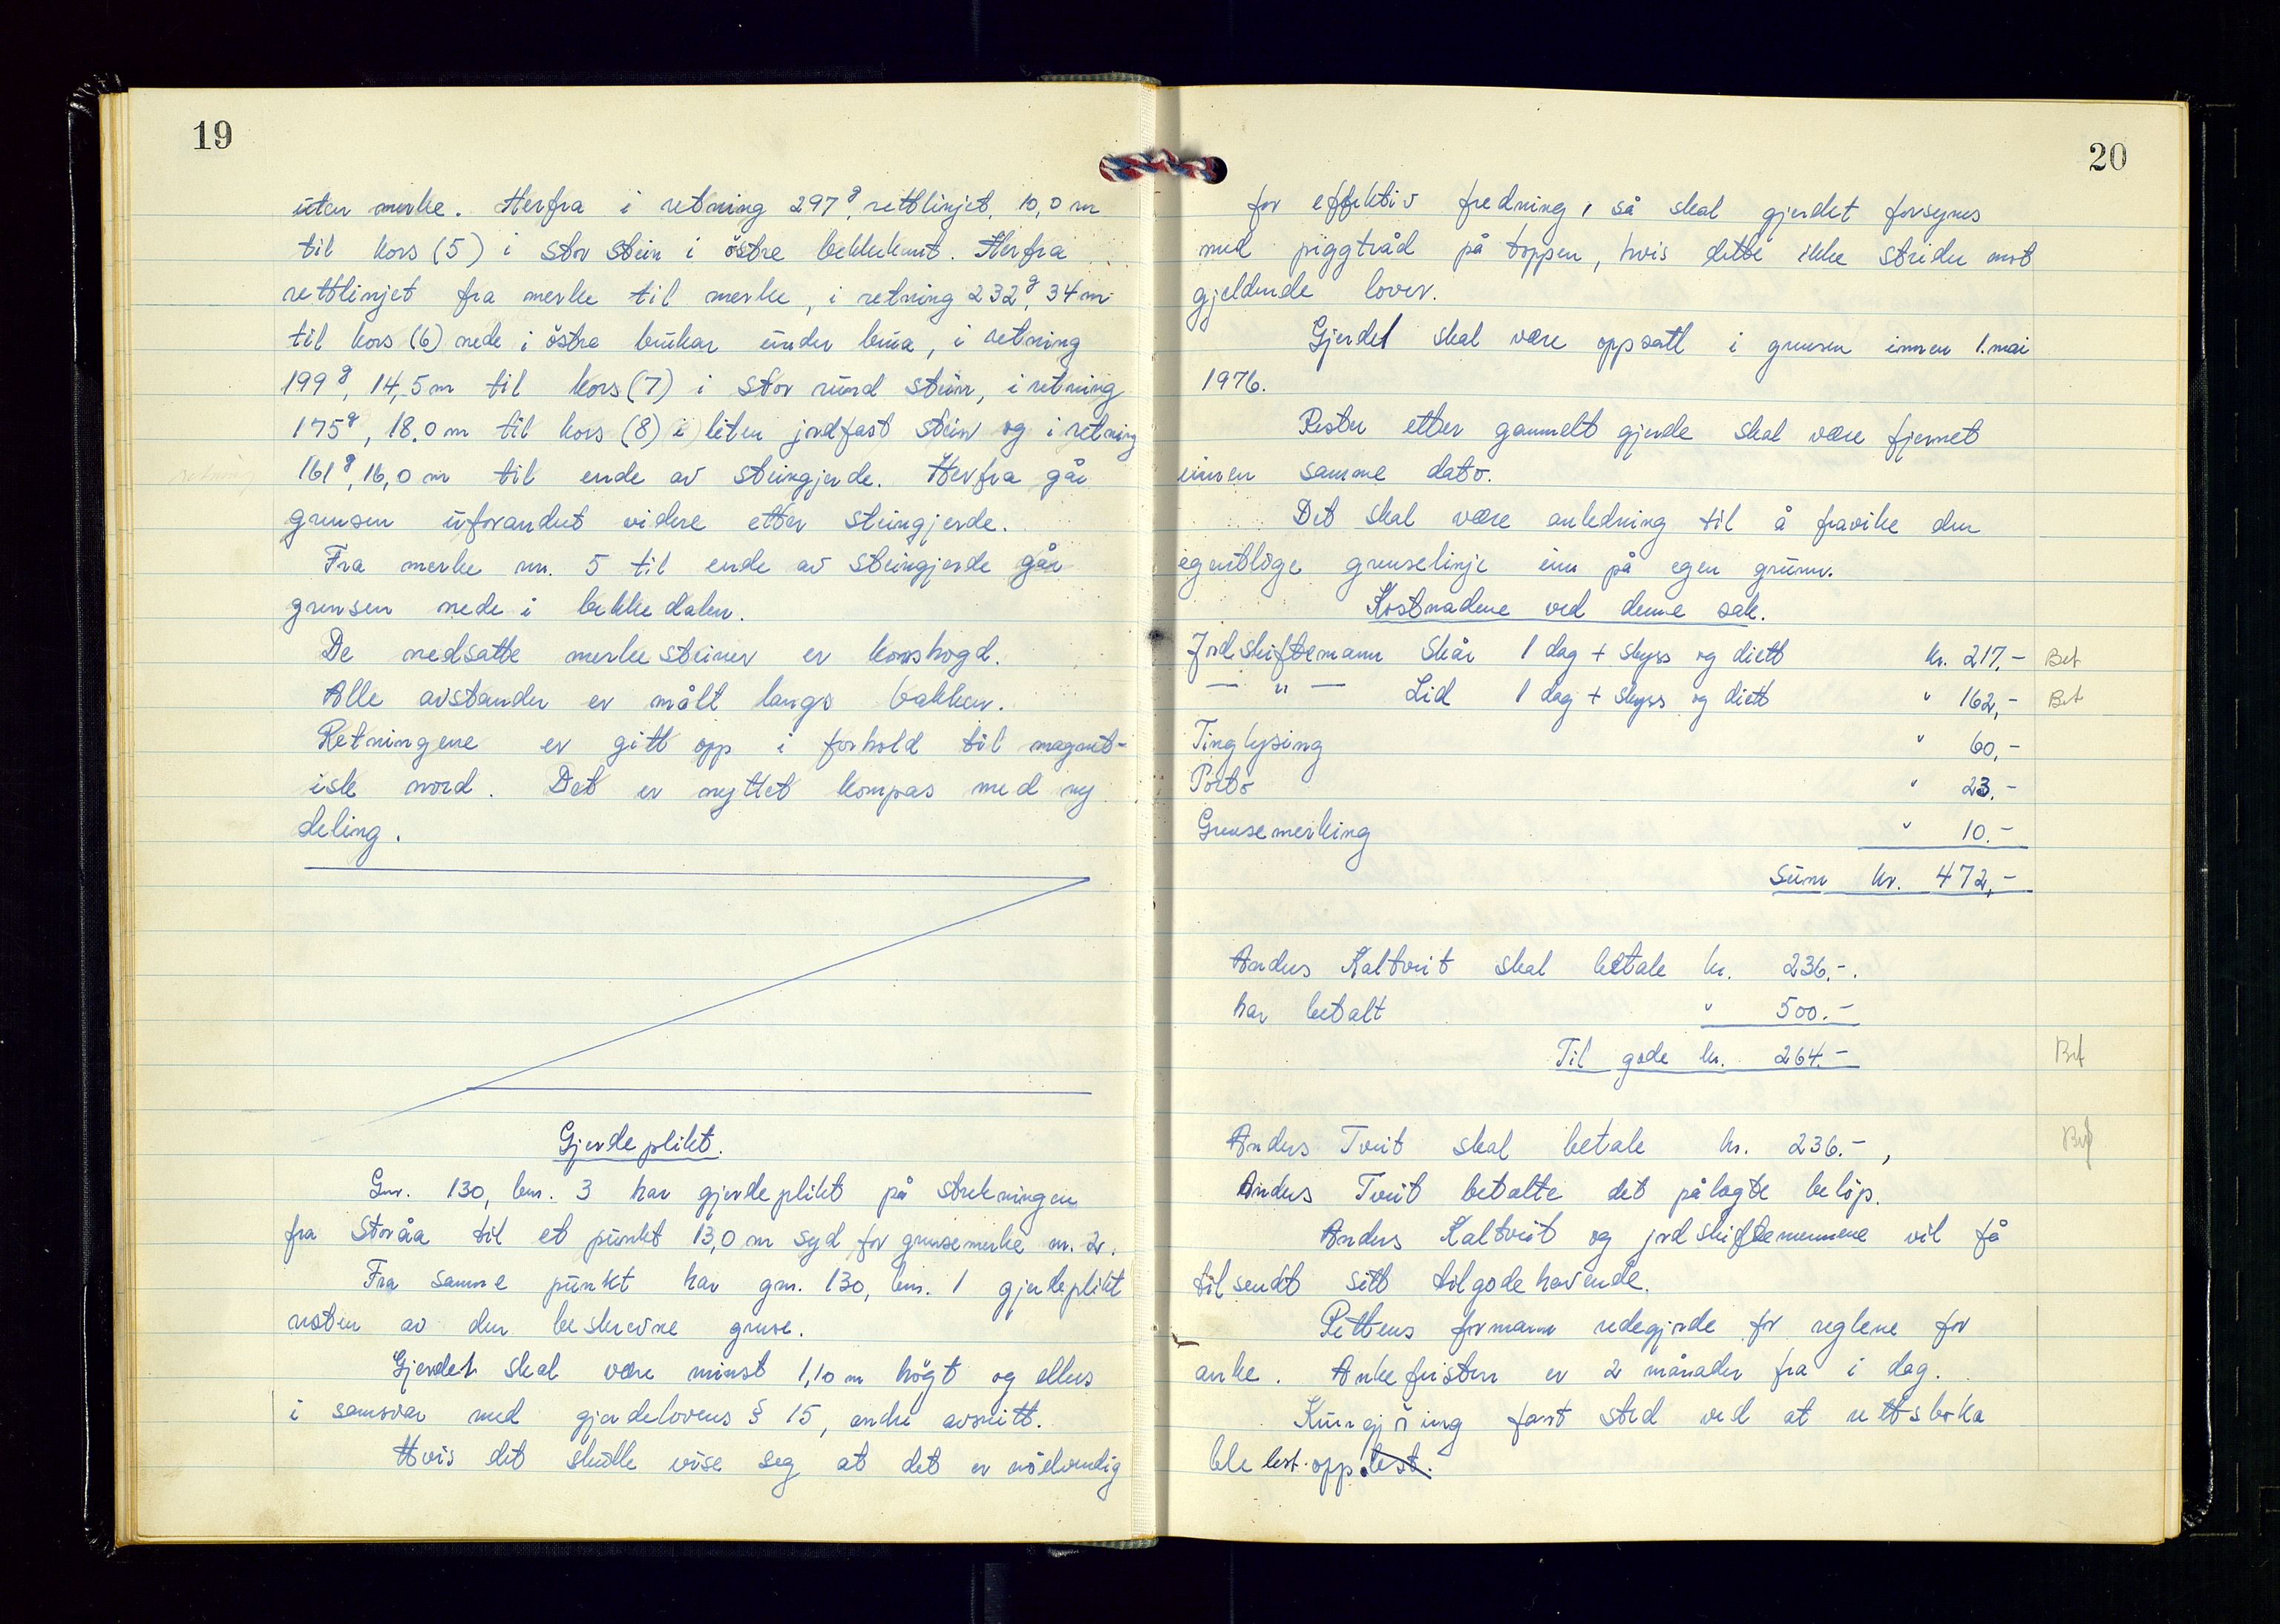 19
uten merke. Herfra i retning 297g, rettlinjet, 10,0 m
til kors (5) i stor stein i östre bekkekant. Herfra
rettlinjet fra merke til merke, i retning 232g, 34 m
til kors (6) nede i östra brukar under brua, i retning
199g, 14,5 m til kors (7) i stor rund stein, i retning
175g, 18,0 m til kors (8) i liten jordfast stein og i retning
161g, 16,0 m til ende av steingjerde. Herfra går
grensen uforandret videre etter steingjerde.
Fra merke nr. 5 til ende av steingjerde går
grensen nede i bekkedalen.
De nedsatte merkesteiner er korshogd.
Alle avstander er målt langs bakken.
Retningene er gitt opp i forhold til magnet-
isk nord. Det er nyttet kompas med ny
deling.
Gjerdeplikt.
Gnr. 130, bnr. 3 har gjerdeplikt på strekningen
fra Storåa til et punkt 13,0 m syd for grensemerke nr. 2.
Fra samme punkt har gnr. 130, bnr. 1 gjerdeplikt
resten av den beskrevne grense.
Gjerdet skal være minst 1,10 m högt og ellers
i samsvar med gjerdelovens § 15, andre avsnitt.
Hvis det skulle vise seg at det er nödvendig
20
for effektiv fredning, så skal gjerdet forsynes
med piggtråd på toppen, hvis dette ikke strider mot
gjeldende lover.
Gjerdet skal være oppsatt i grensen innen 1. mai
1976.
Rester etter gammelt gjerde skal være fjernet
innen samme dato.
Det skal være anledning til å fravike den
egentlige grenselinje inn på egen grunn.
Kostnadene ved denne sak.
Jordskiftemann Skår 1 dag + skyss og diett kr. 217,- Bet
— " — Lid 1 dag + skyss og diett " 162,- Bet
Tinglysing " 60,-
Porto " 23.-
Grensemerking " 10.-
Sum kr. 472,-
Anders Kaltveit skal betale kr. 236.-.
har betalt " 500.-
Til gode kr. 264.- Bet
Anders Tveit skal betale kr. 236.-, Bet
Anders Tveit betalte det pålagte belöp.
Anders Kaltveit og jordskiftemennene vil få
tilsendt sitt tilgodehavende.
Rettens formann redegjorde for reglene for
anke. Ankefristen er 2 månader fra i dag.
Kungjöring fant sted ved at rettsboka
ble lest opp. lest.